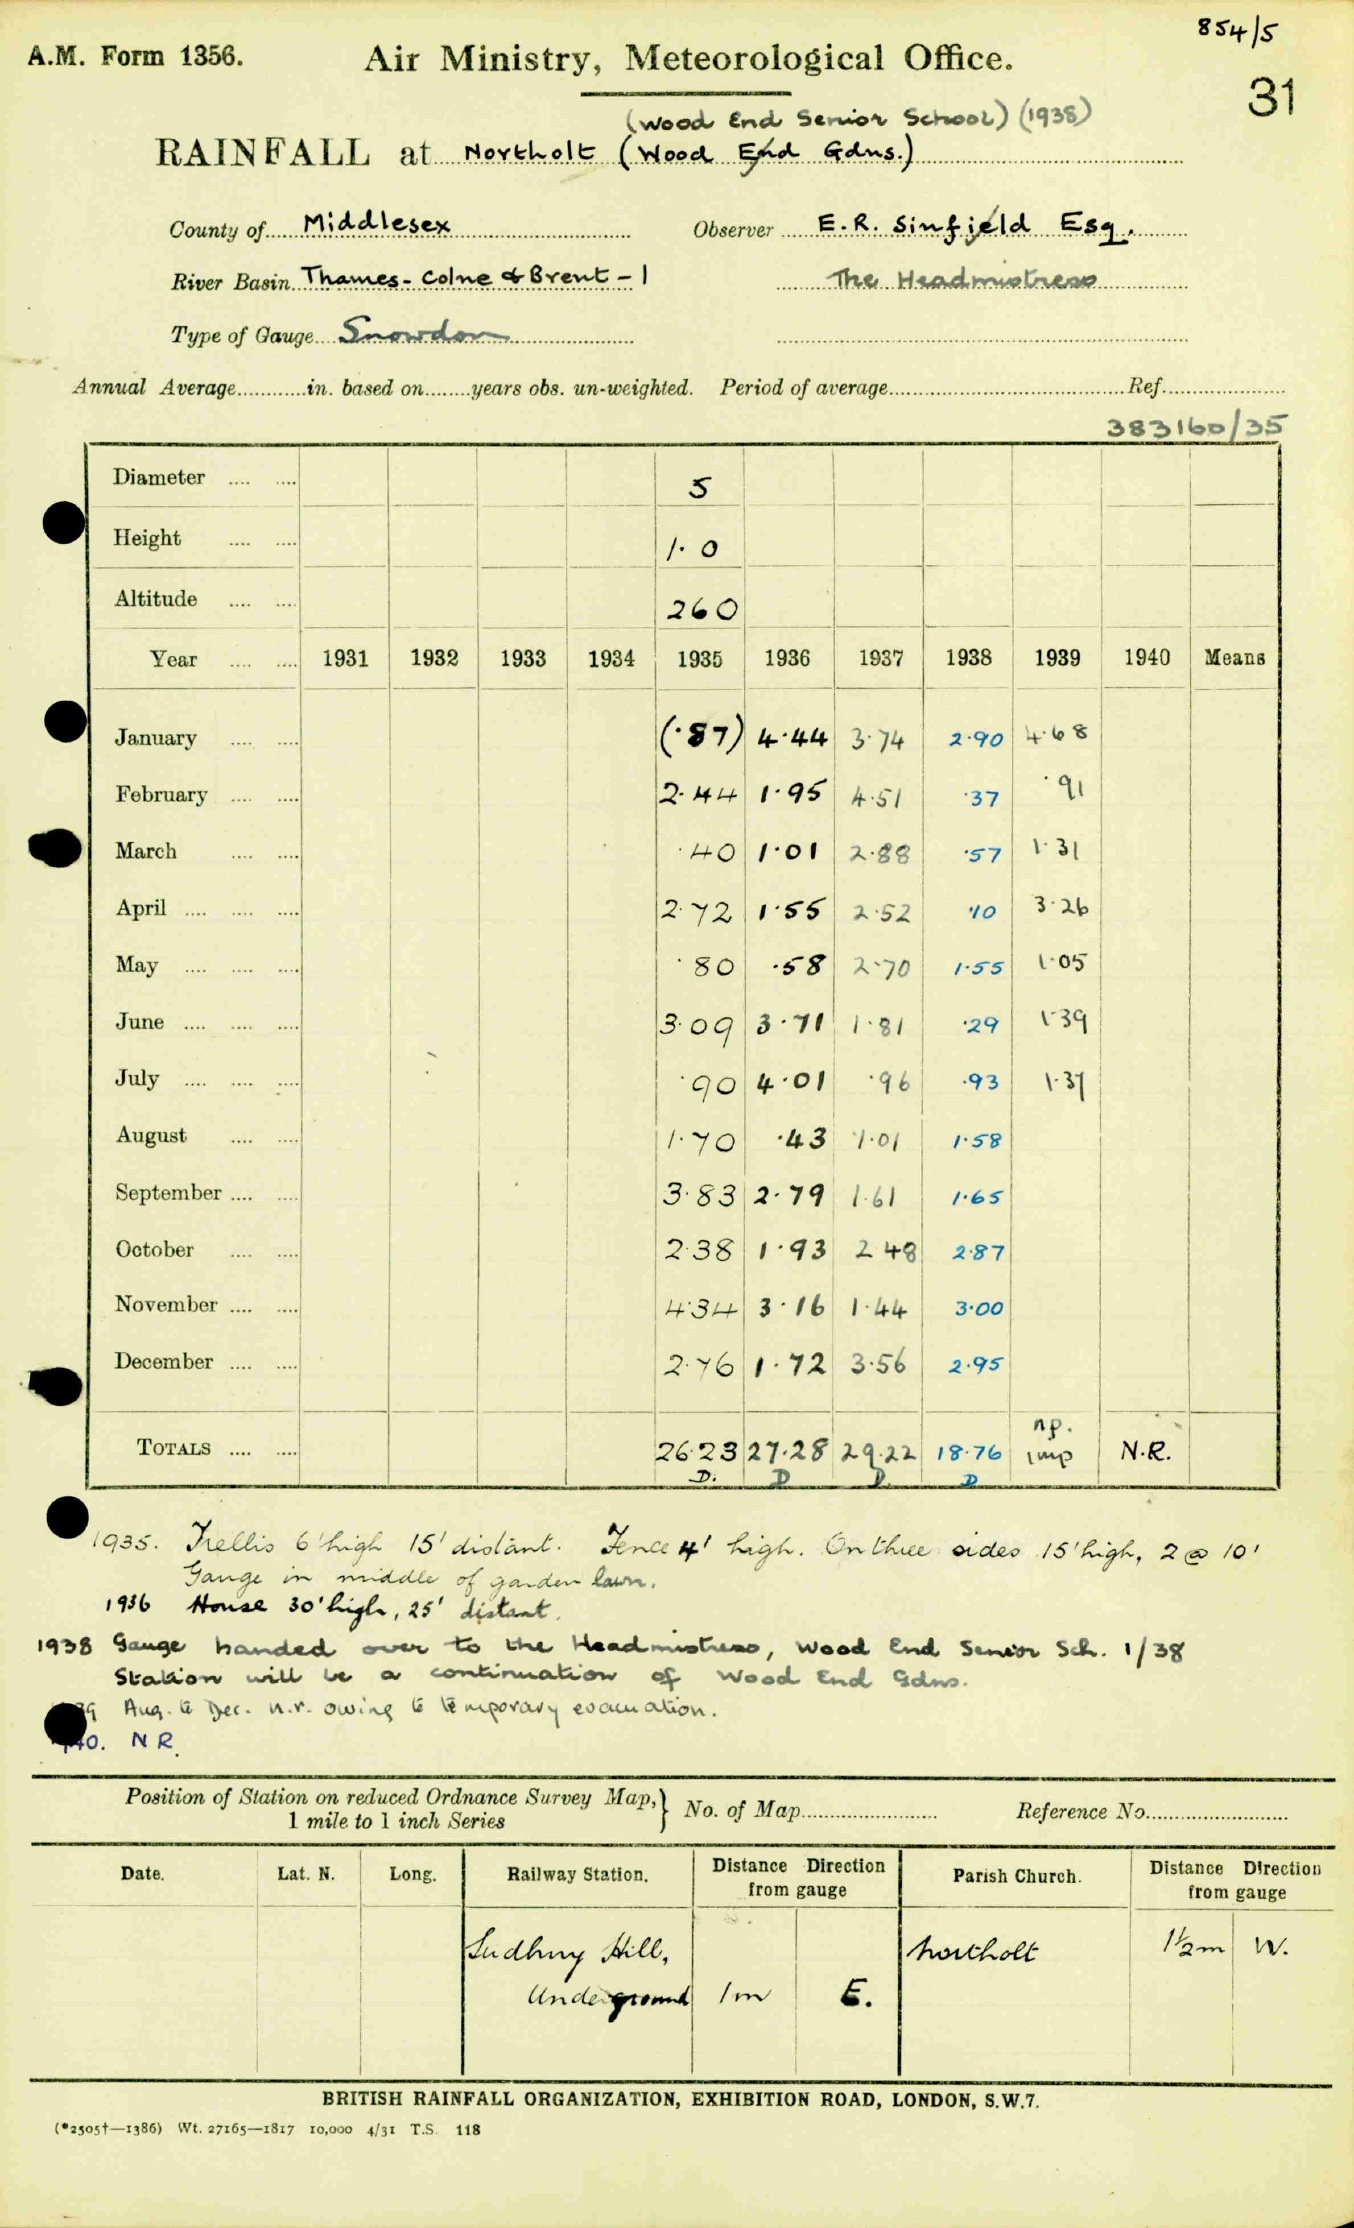 854/5
A.M. Form 1356. Air Ministry, Meteorological Office.
31
(Wood End Senior School) (1938)
RAINFALL at Northolt (Wood End Gdns.)
County of Middlesex Observer E.R. Sinfield Esq.
River Basin Thames - Colne & Brent - 1 The Headmistress
Type of Gauge Snowdon
Annual Average............in. based on........years obs. un-weighted. Period of average.................... Ref....................
383160/35
Diameter .... .... 5
Height .... .... 1.0
Altitude .... .... 260
Year .... .... 1931 1932 1933 1934 1935 1936 1937 1938 1939 1940 Means
January .... .... (.87) 4.44 3.74 2.90 4.68
February .... .... 2.44 1.95 4.51 .37 .91
March .... .... .40 1.01 2.88 .57 1.31
April .... .... .... 2.72 1.55 2.52 .10 3.26
May .... .... .... .80 .58 2.70 1.55 1.05
June .... .... .... 3.09 3.71 1.81 .29 1.39
July .... .... .... .90 4.01 .96 .93 1.37
August .... .... 1.70 .43 1.01 1.58
September .... .... 3.83 2.79 1.61 1.65
October .... .... 2.38 1.93 2 48 2.87
November .... .... 4.34 3.16 1.44 3.00
December .... .... 2.76 1.72 3.56 2.95
np.
TOTALS .... .... 26.23 27.28 29.22 18.76 imp N.R.
D. D D. D
1935. Trellis 6' high 15' distant. Fence 4' high. On three sides 15' high, 2 @ 10'
Gauge in middle of garden lawn.
1936 House 30' high, 25' distant.
1938 Gauge handed over to the Headmistress, Wood End Senior Sch. 1/38
Station will be a continuation of Wood End Gdns.
39 Aug. to Dec. n.r. owing to temporary evacuation.
40. N R.
Position of Station on reduced Ordnance Survey Map,} No. of Map.................... Reference No....................
1 mile to 1 inch Series
Date. Lat. N. Long. Railway Station. Distance Direction from gauge Parish Church. Distance Direction from gauge
Sudbury Hill, Northolt 1½m W.
Underground 1m E.
BRITISH RAINFALL ORGANIZATION, EXHIBITION ROAD, LONDON, S.W.7.
(*2505†—1386) Wt. 27165—1817 10,000 4/31 T.S. 118